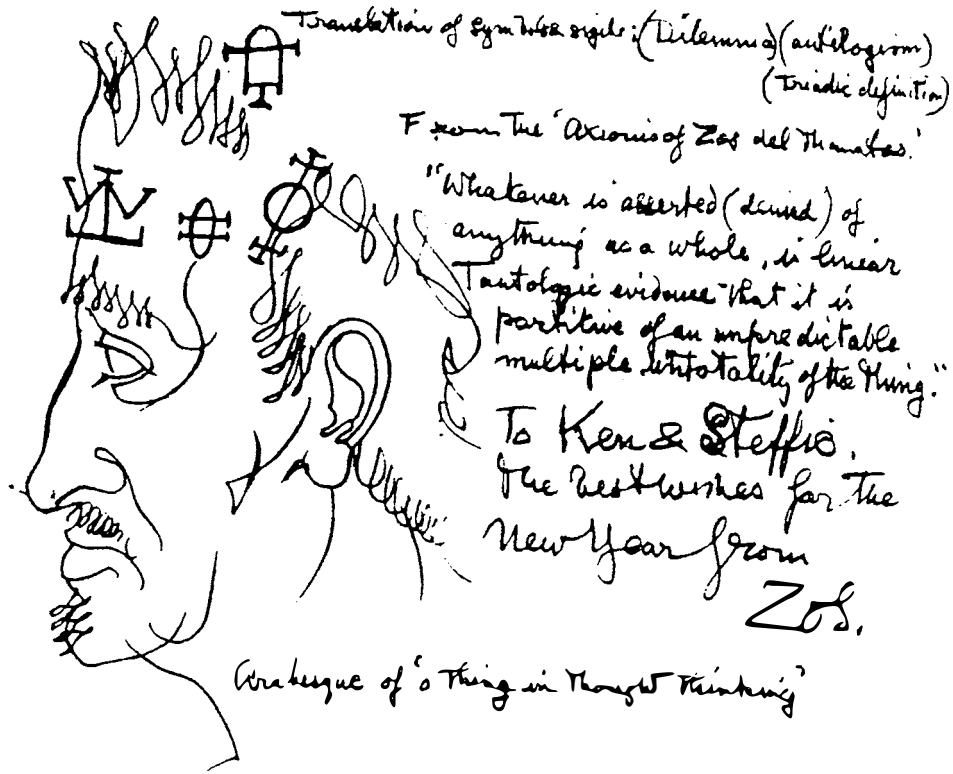 Translation of symbols & sigils: (Dilemma) (antilogism)
(Triadic definition)
From The 'Axioms of Zos del Thanatos.'
"Whatever is asserted (denied) of
anything as a whole, is linear
Tautologic evidence that it is
partitive of an unpredictable
multiple untotality of the thing."
To Ken & Steffie.
The best wishes for the
New Year from
Zos.
Arabesque of 'a Thing in Thought Thinking'